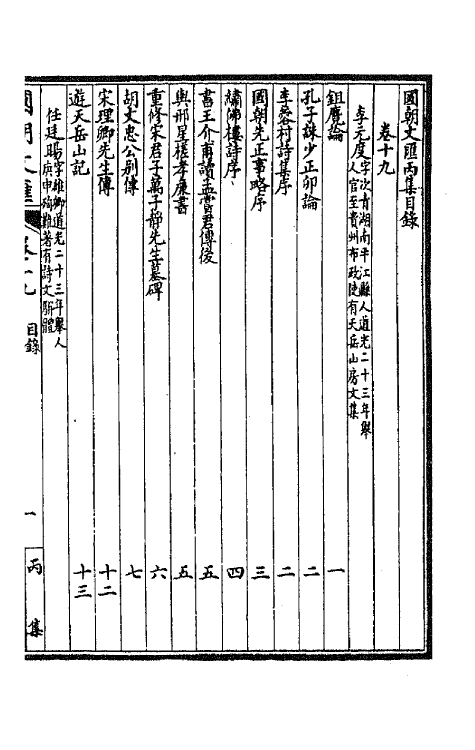 國朝文匯丙集目錄
卷十九
李元度字次青湖南平江縣人道光二十三年舉
人官至貴州布政使有天岳山房文集
鉏麑論 一
孔子誅少正卯論 二
李蓉村詩集序 二
國朝先正事略序 三
繡佛樓詩序 四
書王介甫讀孟嘗君傳後 五
與邢星槎孝廉書 五
重修宋君子萬子靜先生墓碑 六
胡文忠公別傳 七
宋理卿先生傳 十二
遊天岳山記 十三
任廷暘字雄卿道光二十三年舉人
庚申殉難著有詩文駢體
國朝文匯 卷十九 目錄 一 丙集